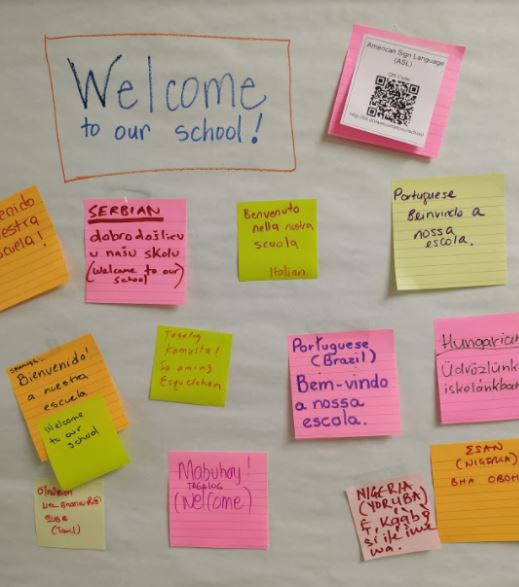 Welcome
to our school!
American Sign Language
(ASL)
QR Code
enido
estra
cuela!
SERBIAN
dobrodošlicu
u našu školu
(Welcome to our
school)
Benvenuto
nella nostra
scuola
Italian
Portuguese
Beinvindo a
nossa
escola.
Bienvenido!
a nuestra
escuela
Welcome
to our
school
Tagalog
Portuguese
(Brazil)
Bem-vindo
a nossa
escola.
Hungarian
Üdvözlünk
iskolánkban
Mabuhay!
TAGALOG
(Welcome)
NIGERIA
(YORUBA)
wa.
ESAN
(NIGERIA)
BHA OBOH